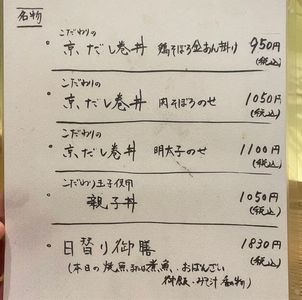 名物
こだわりの
京、だし巻丼 鶏そぼろ金あん掛け 950円
(税込)
こだわりの
京、だし巻丼 肉そぼろのせ 1050円
(税込)
こだわりの
京、だし巻丼 明太子のせ 1100円
(税込)
こだわり玉子使用
親子丼 1050円
(税込)
日替り御膳 1830円
(本日の焼魚または煮魚、おばんざい (税込)
御飯・みそ汁 香の物)